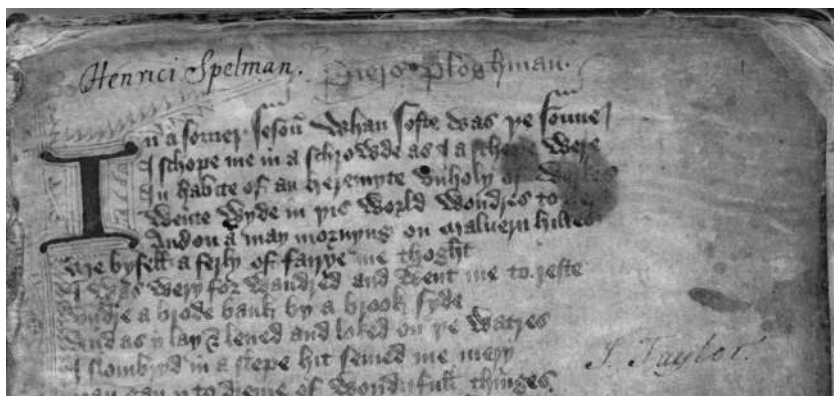 Henrici Spelman. Piers Ploghman.
In a somer seson whan softe was þe sonne
I schope me in a schrowde as I a schepe were
In habite of an heremyte unholy of werkes
Wente wyde in þis world wondres to
And on a may mornyng on maluern hilles
Me byfell a ferly of fairye me thoght
I was wery for wandred and went me to reste
Undre a brode bank by a brook syde
And as y lay & lened and loked on þe watres
I slombryd in a slepe hit semed me mery
gan y to dreme of wondrfull thinges
J. Taylor.